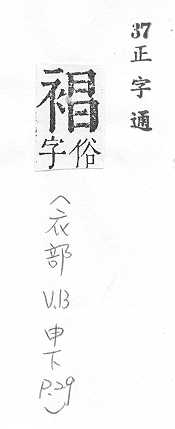 37正字通
裮
俗字
(衣部 V.13 申下 P.29)